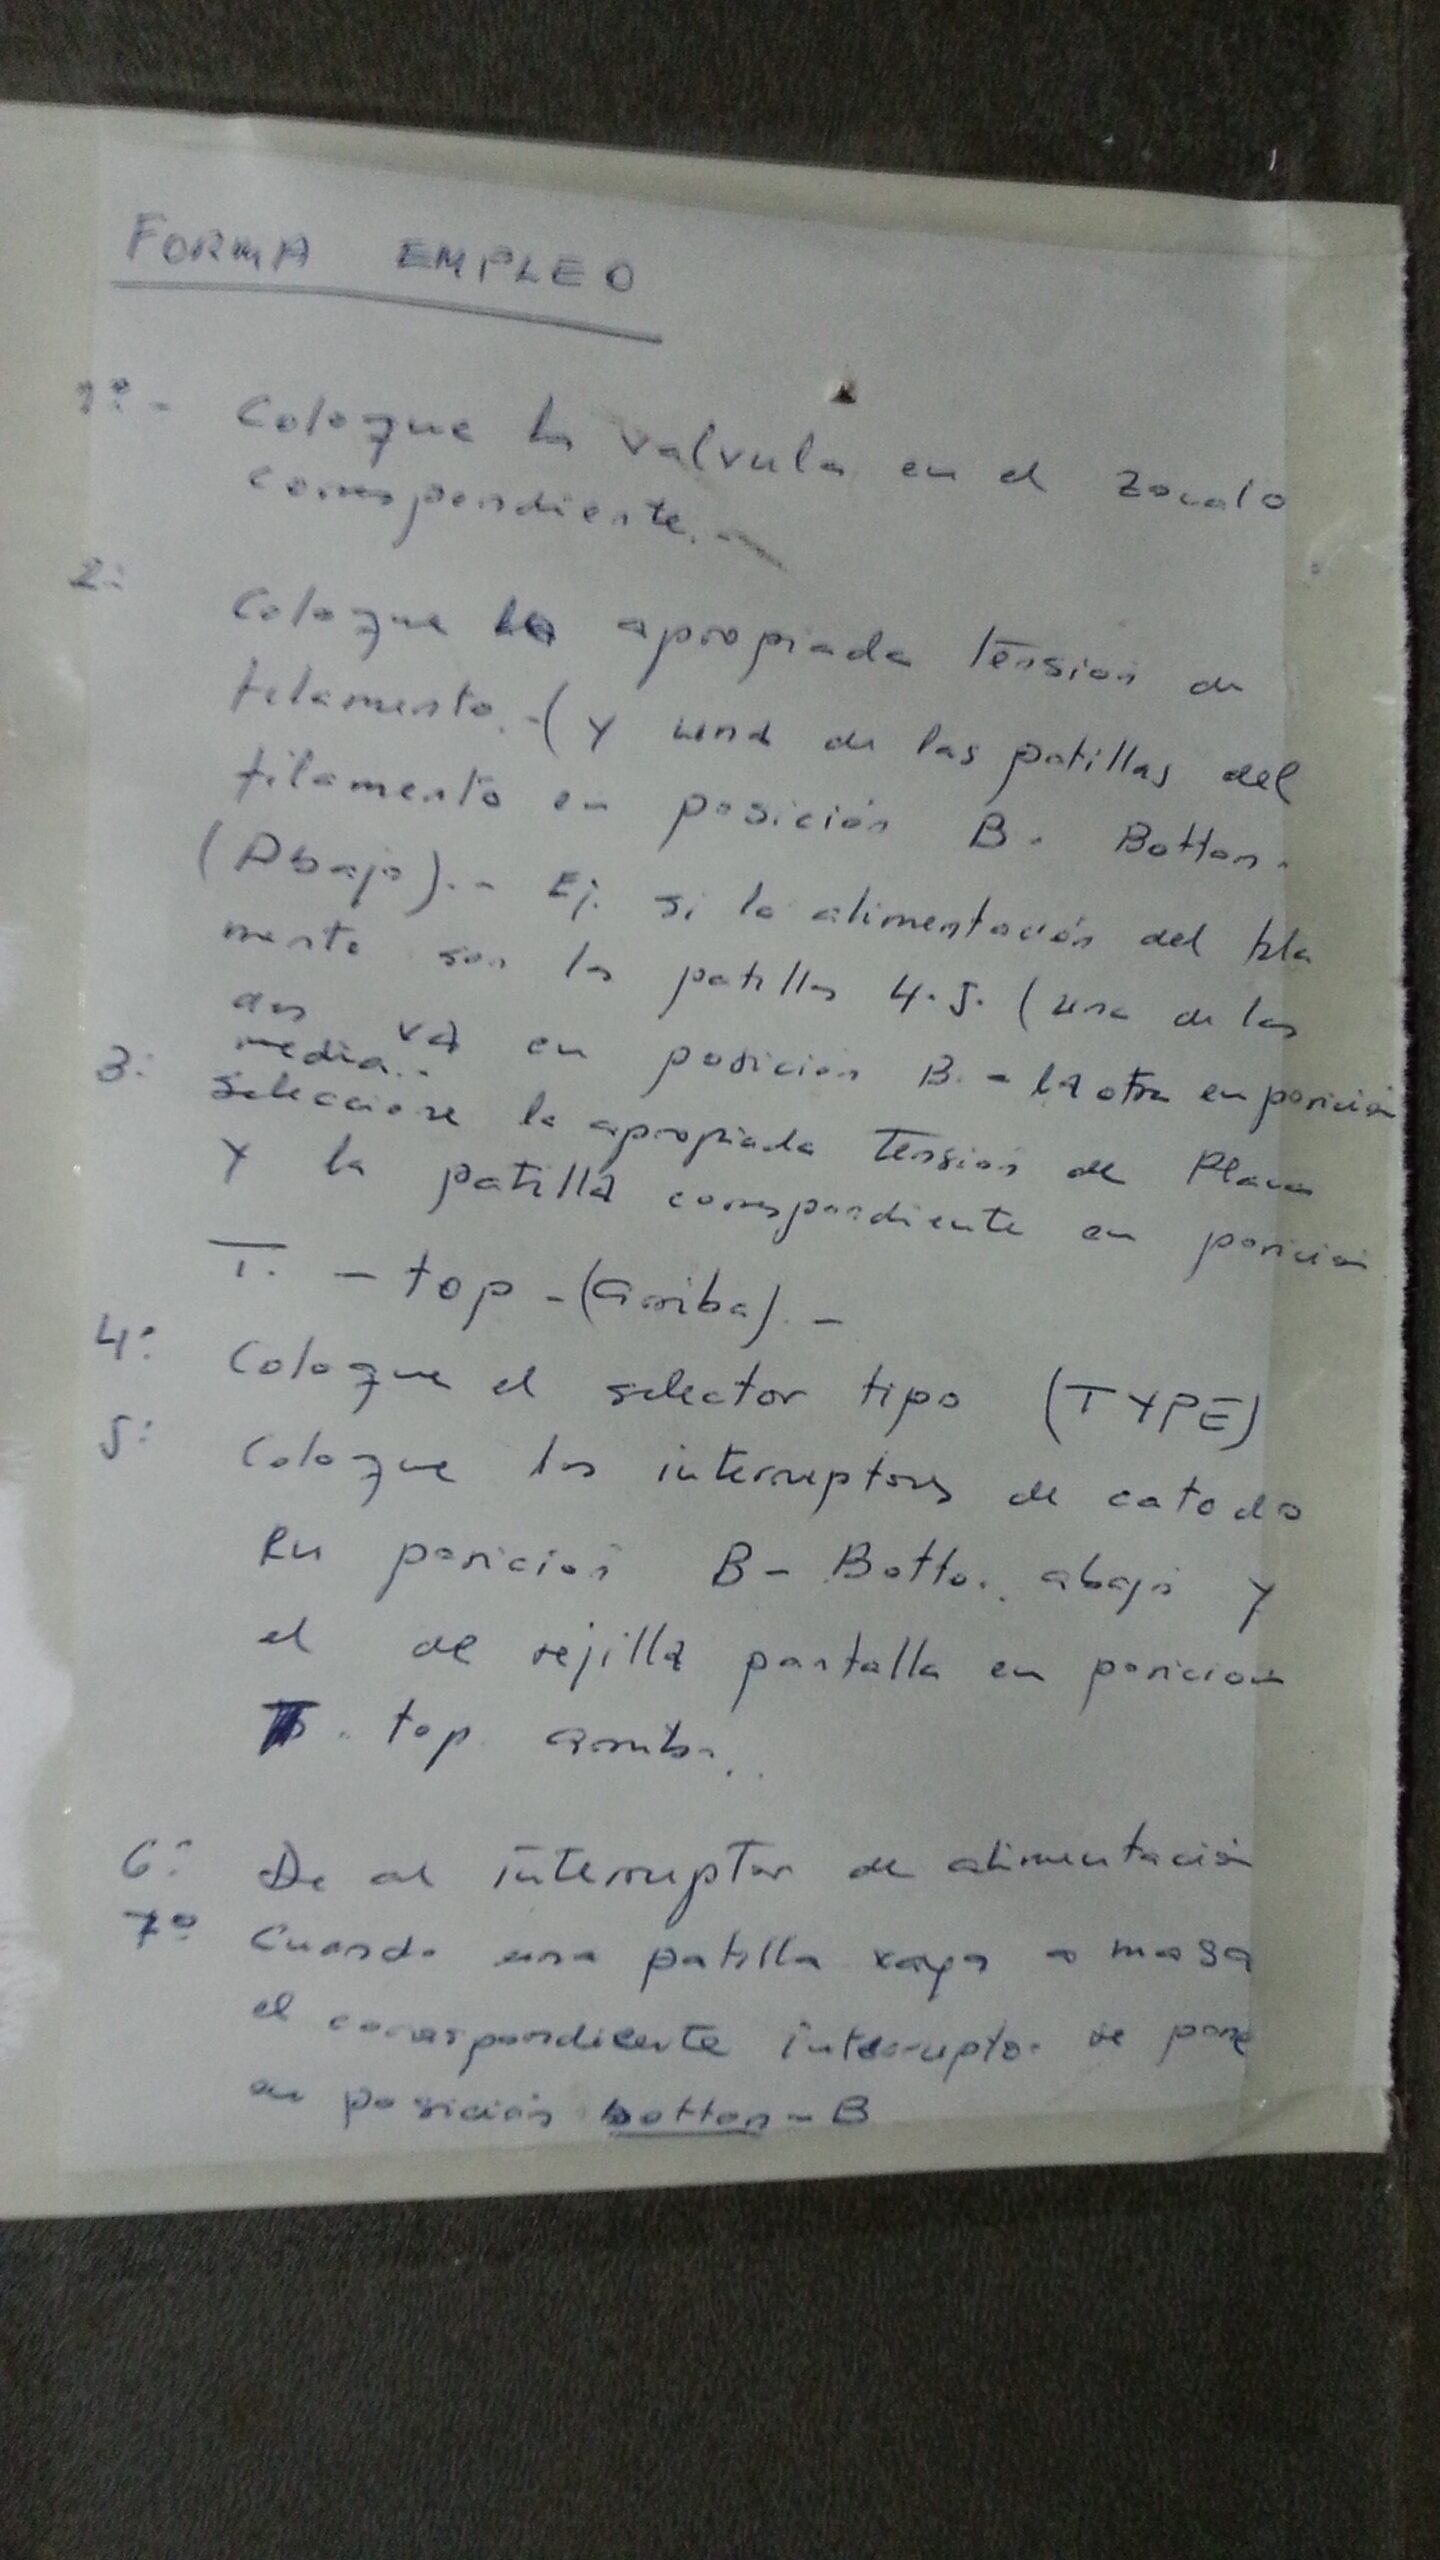 FORMA EMPLEO
1º- Coloque la valvula en el zocalo
correspondiente.-
2º Coloque la apropiada tension de
filamento.-(y una de las patillas del
filamento en posición B. Botton.
(Abajo).- Ej. si la alimentación del fila
mento son las patillas 4.5. (una de las
dos va en posición B.- la otra en posición
media..-
3º seleccione la apropiada Tension de Placa
Y la patilla correspondiente en posicion
T. - top -(arriba).-
4º Coloque el selector tipo (TYPE)
5º Coloque los interruptores de catodo
en posicion B- Botto.. abajo y
el de rejilla pantalla en posicion
T. top arriba..
6º De al interruptor de alimentación
7º Cuando una patilla vaya a masa
el correspondiente interruptor se pone
en posición botton-B